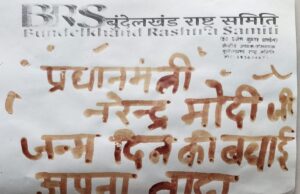 BRS बुंदेलखंड राष्ट्र समिति
Bundelkhand Rashtra Samiti
प्रधानमंत्री
नरेन्द्र मोदी जी
जन्म दिन की बधाई
अपना वादा